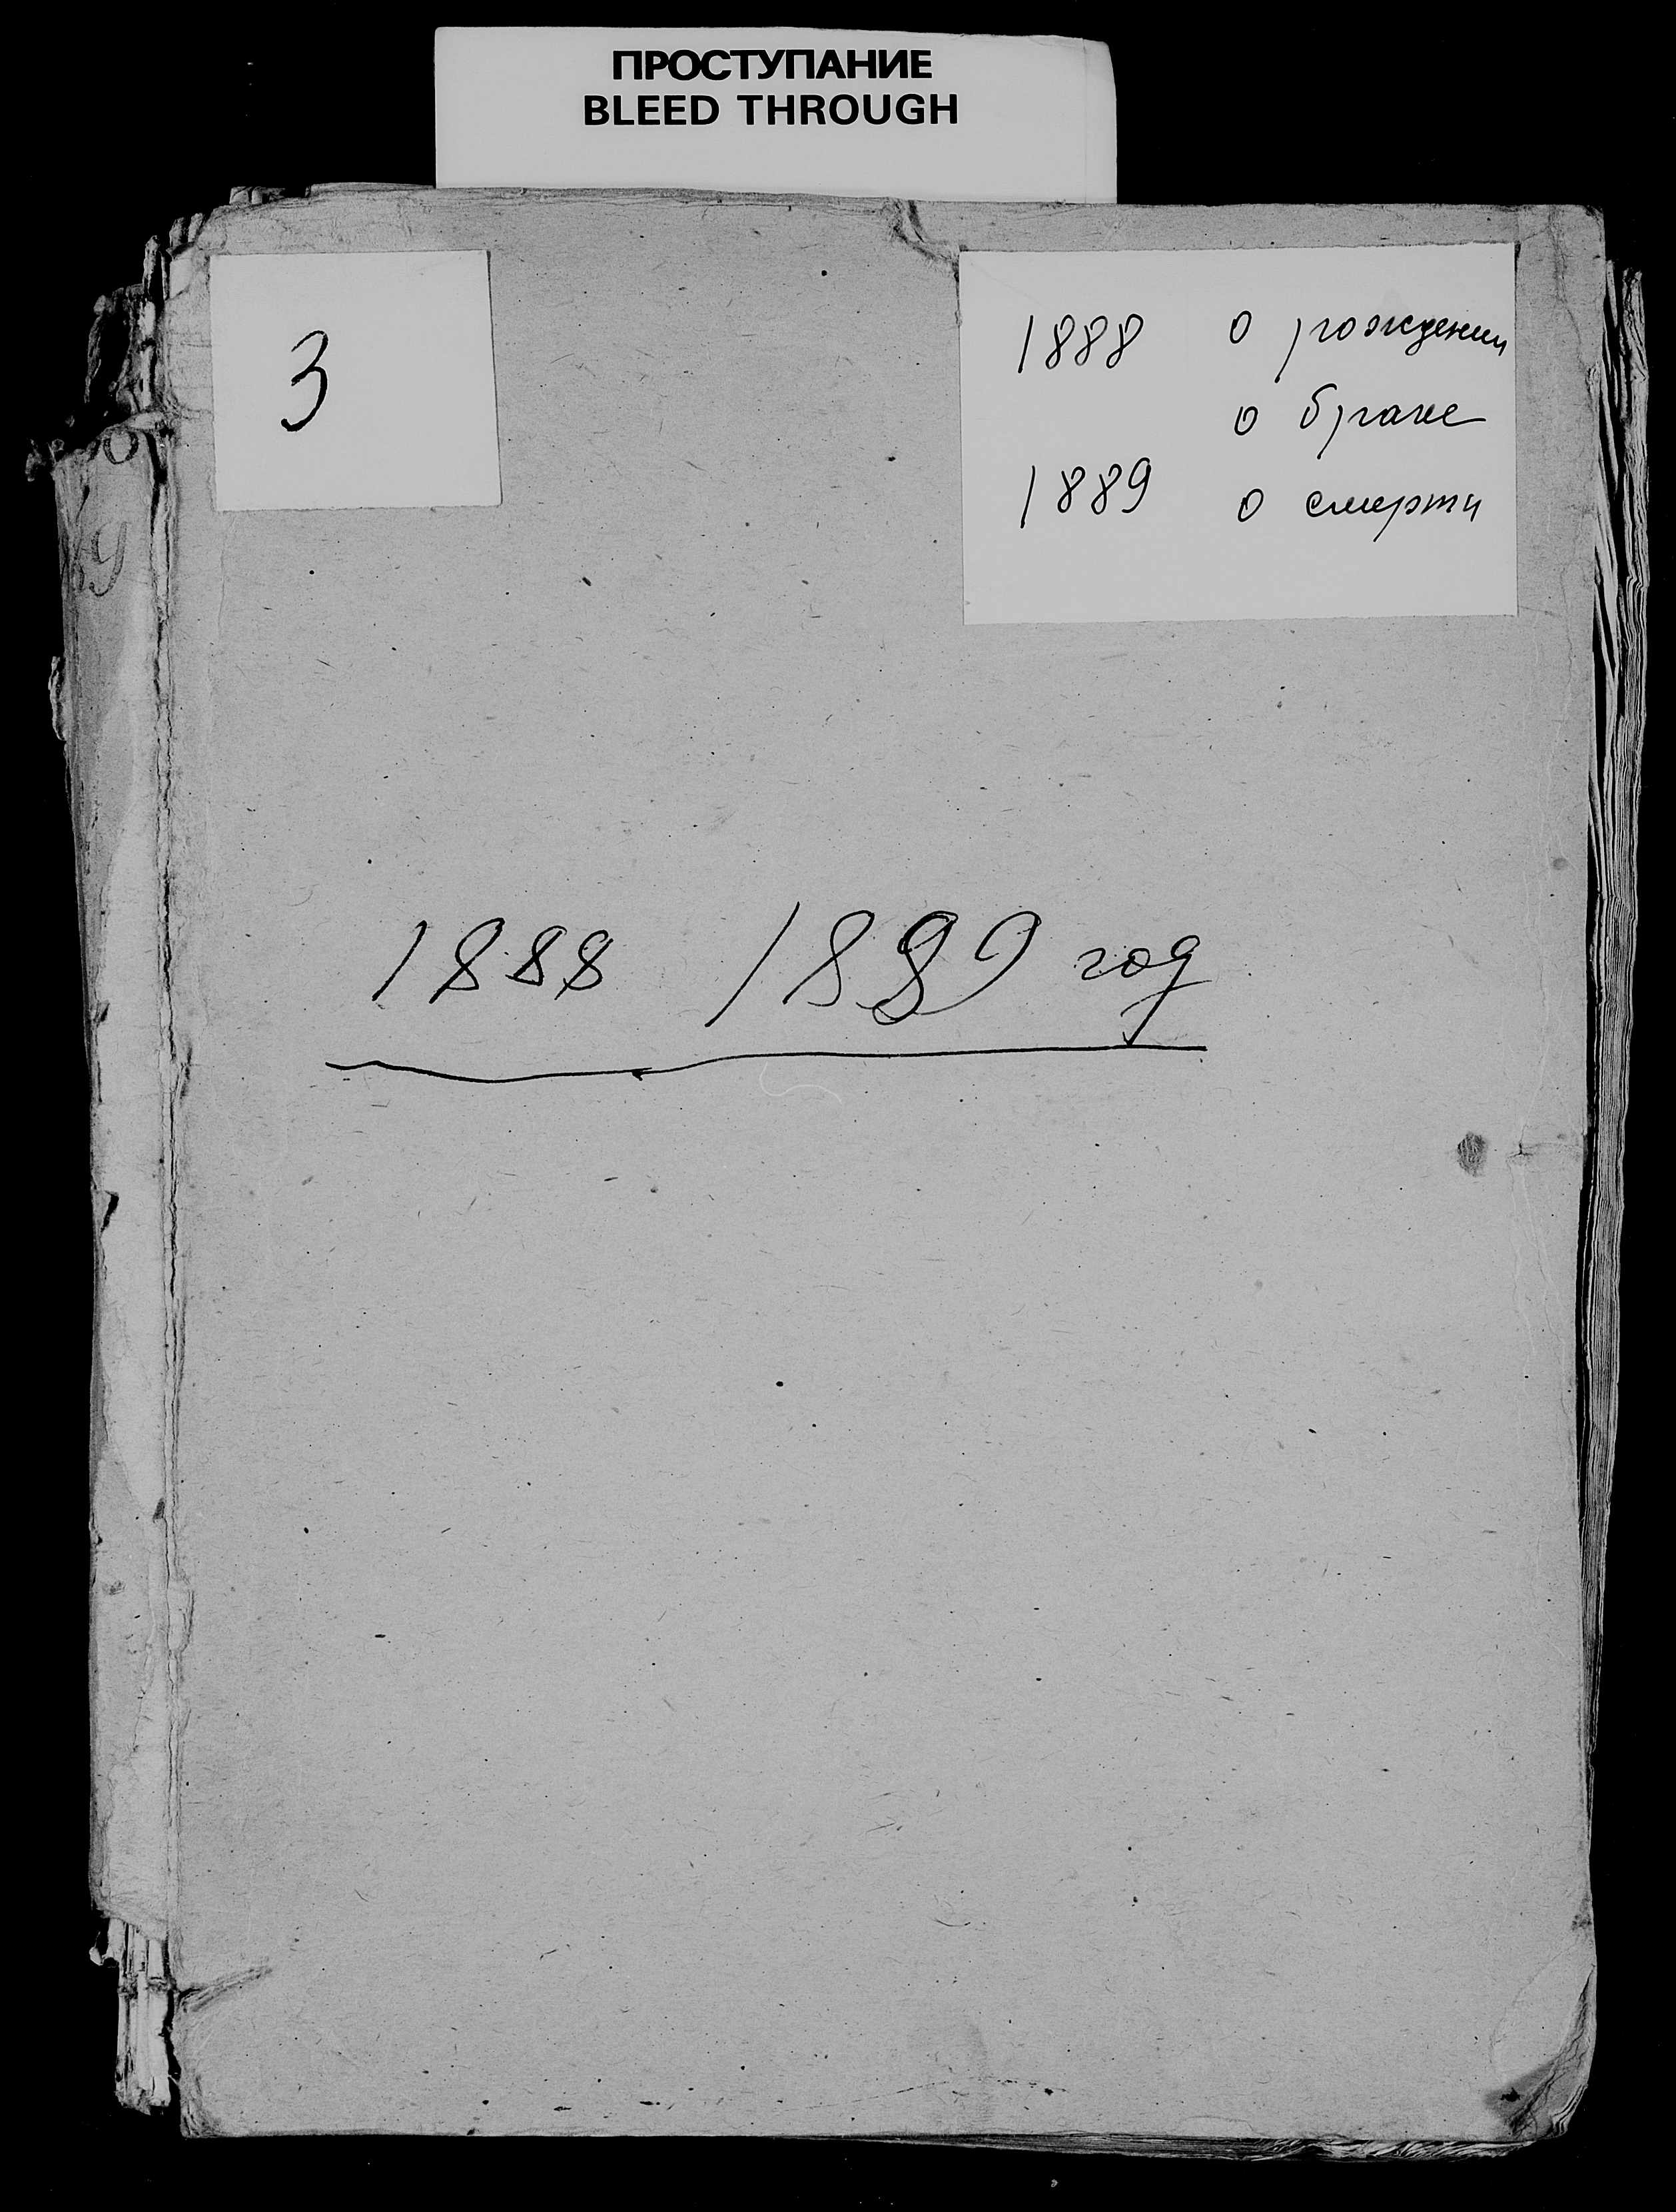 ПРОСТУПАНИЕ
BLEED THROUGH
3
1888 о рождении
о браке
1889 о смерти
9
1888 1889 год